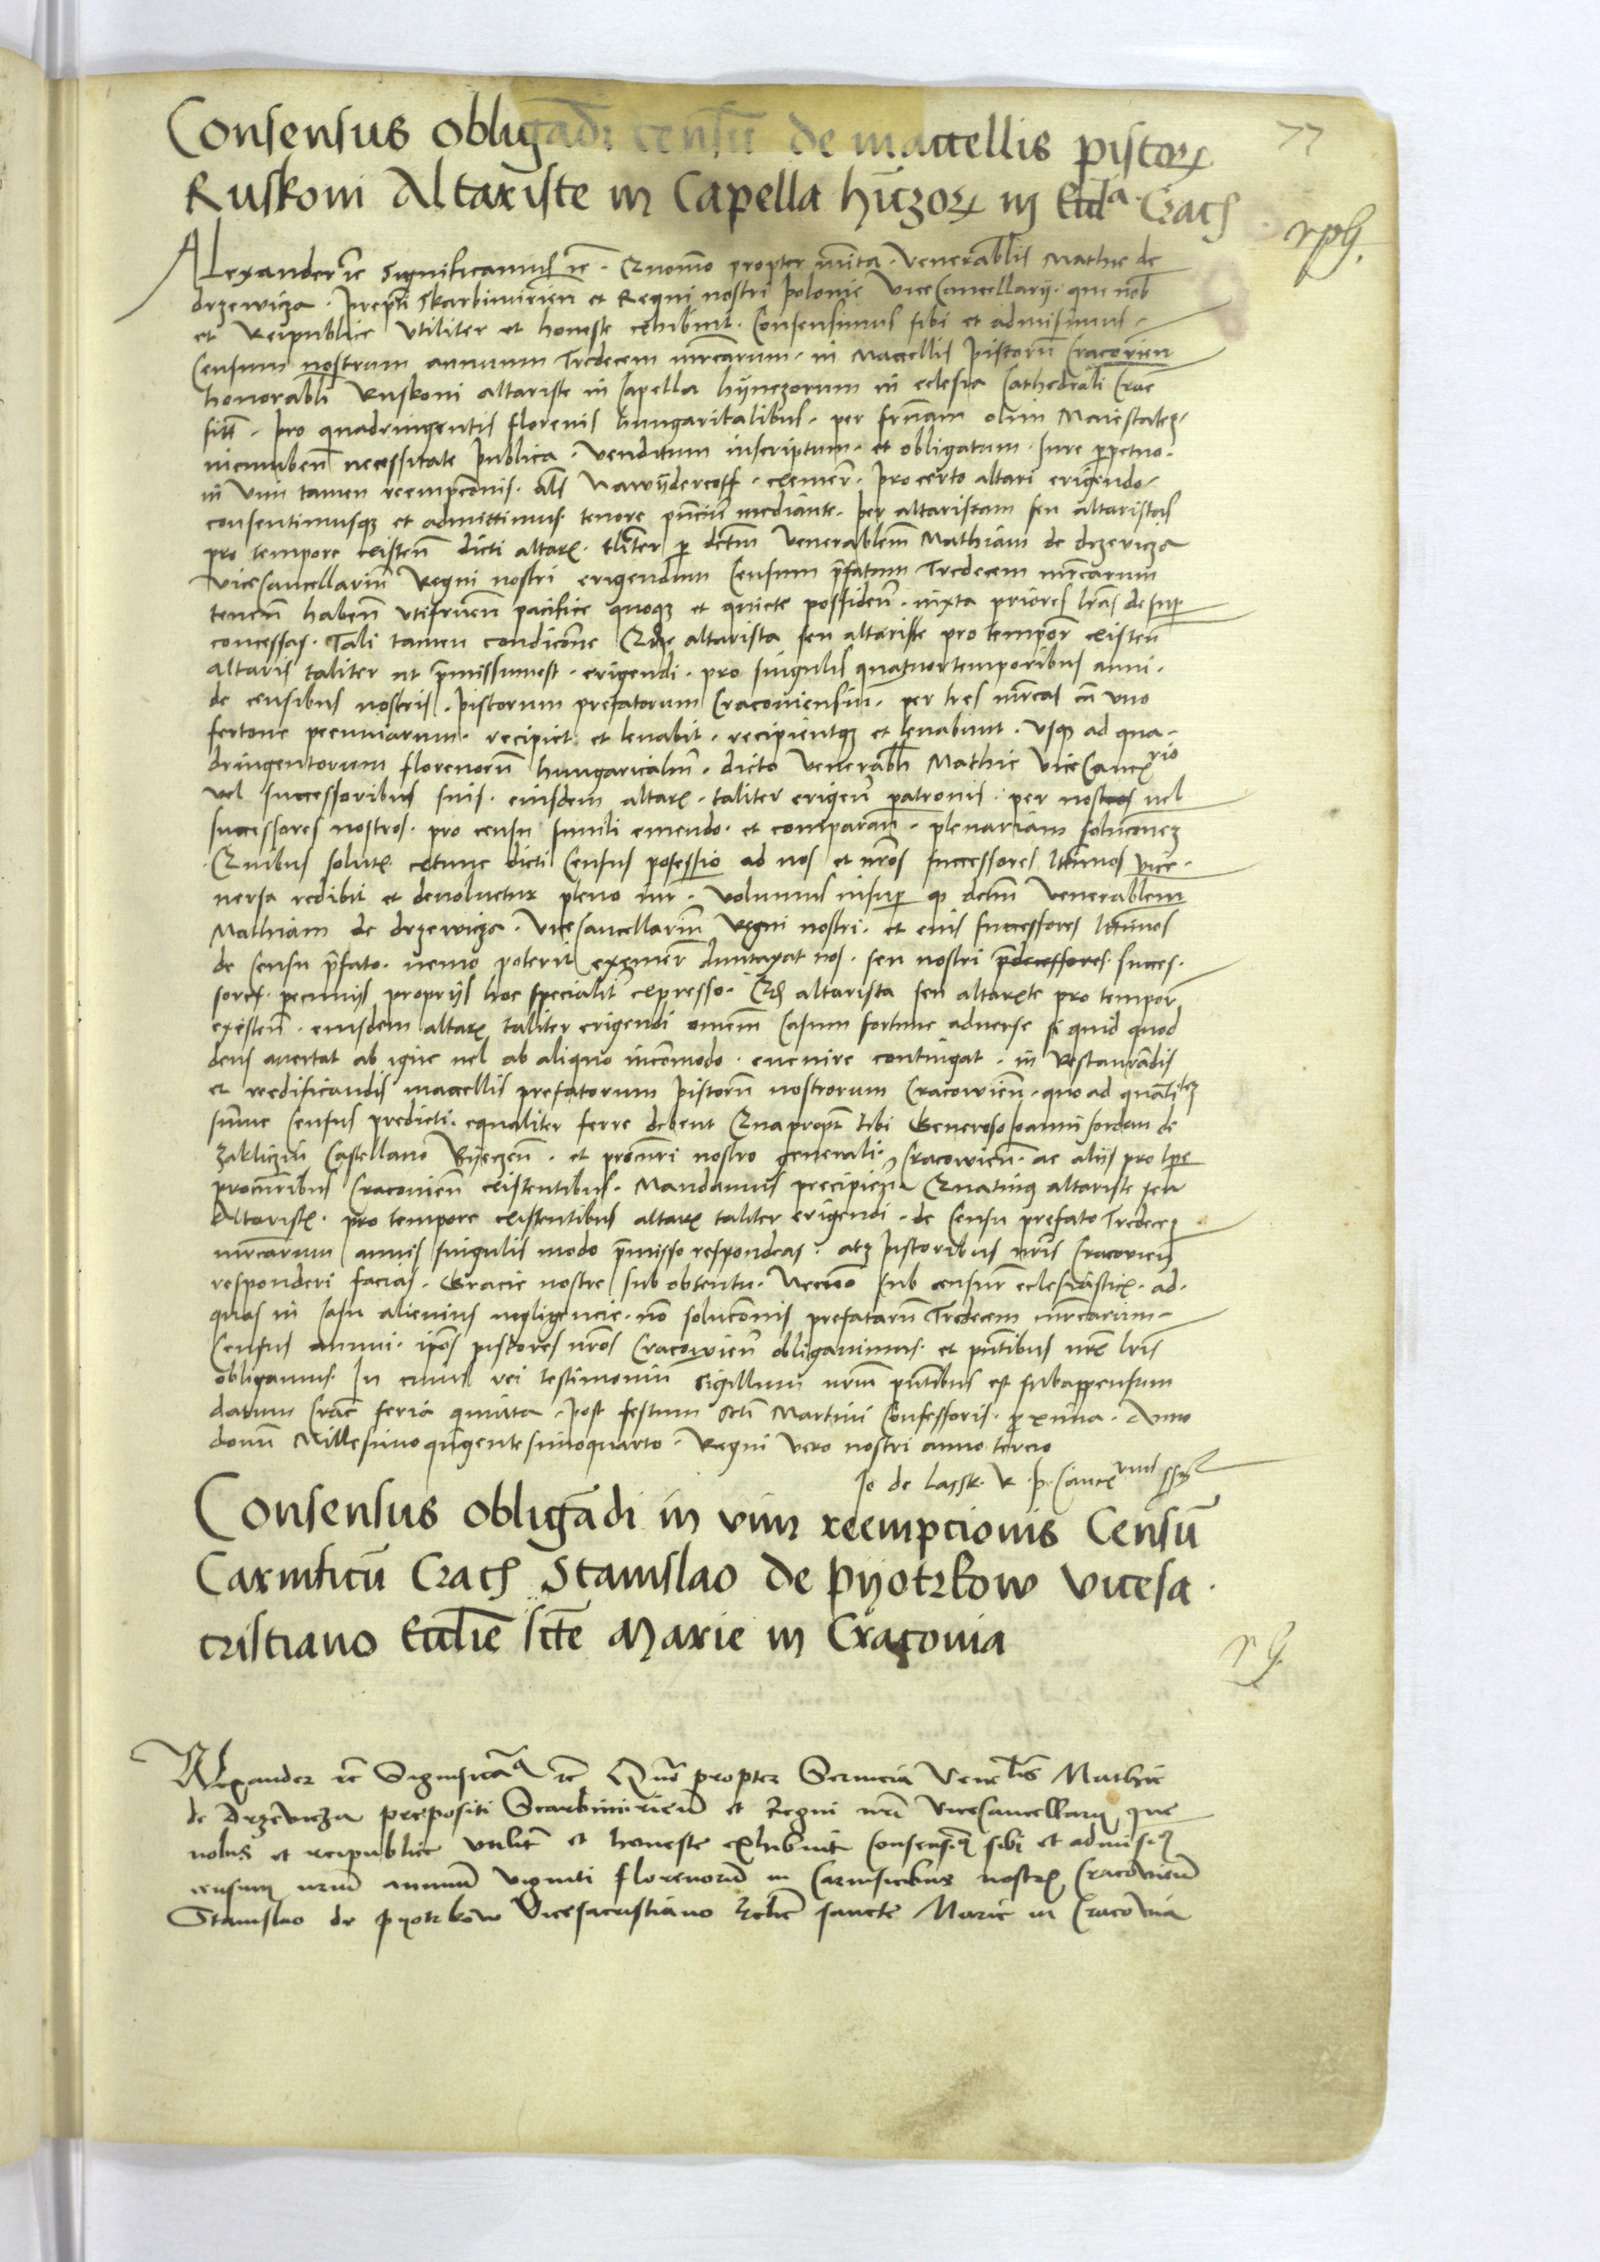 77
Consensus obligādi censū de maccellis pistorꝝ
Ruskoni Altariste in Capella hiczorꝝ in Eccla Crac
Alexander ꝛc̄ Significamus ꝛc̄ · Quomō propter mīta · Venerablis Mathie de
drzewicza · prepti Skarbimirien̄ et Regni nostri polonie ViceCancellarij · que nob
et Reipublice Utiliter et honeste exhibuit · Consensimus sibi et admisimus ·
Censum nostrum annuum Tredecem mrcarum · in Maccellis pistorū Cracovien
honorabli Ruskoni altariste in Capella hyinczorum in eclesia Cathedrali Crac
· pro quadringentis florenis hungaricalibus · per frnam olim Maiestatez ·
incumben̄ necessitate publica · venditum inscriptum · et obligatum · Iure ppetuo ·
in vim tamen reempcōnis · als Nawydercoff · eximer̄ · pro certo altari erigendo ·
consentimusqꝫ et admittimus tenore pn̄ciū mediante · per altaristam seu altaristas
pro tempore existen̄ dicti altarꝭ · tliter p dctm Venerablem̄ Mathiam de drzevicza
ViceCancellariū Regni nostri erigendum Censum p̄fatum Tredecem mrcarum
tenen̄ haben̄ vtifruen̄ pacifice quoqꝫ et quiete possiden̄ · iuxta priores lrās desup
concessas · Tali tamen condicōne Qdꝫ altarista seu altariste pro tempor̄ existen̄
Altaris taliter ut p̄missumest · erigendi · pro singulis quatuortemporibus anni ·
de censibus nostris · pistorum prefatorum Cracouiensiū · per tres mrcas cū vno
fertone pecuniarum · recipiet et leuabit · recipientqꝫ et leuabunt · Usqꝫ ad qua-
dringentorum florenorū hungaricaliū · dicto Venerabli Mathie ViceCancꝭrio
vel successoribus suis · eiusdem altarꝭ · taliter erigen̄ patronis · per nos vel
successores nostros · pro censu simili emendo · et comparan̄ · plenariam solucōnez
Quibus solutꝭ extunc dicti Census possessio ad nos et nr̄os successores lttimos vice-
versa redibit et devoluetur pleno iur̄ · Volumus insup qꝫ dctm̄ Venerablem
Mathiam de drzewicza · ViceCancellariū Regni nostri · et eius successores lttimos
de Censu p̄fato · nemo poterit eximer̄ dumtaxat nos · seu nostri successores · succes-
sores · pecunijs proprijs hoc specialit̄ expresso · Qd altarista seu altarꝭte pro tempor̄
existen̄ · eiusdem altarꝭ taliter erigendi omnem̄ Casum fortune aduerse si quid quod
deus auertat ab igne vel ab aliquo incōmodo · euenire contingat · in Restaurādis
et reedificandis maccellis prefatorum pistorū nostrorum Cracowien̄ · quo ad quātitez
sūme Census predicti · equaliter ferre debent Quapropt tibi Generoso Ioanni Jordan de
Zakliczin Castellano Byeczen̄ · et procuri nostro generali · Cracowien̄ · ac aliis pro tpe
procuribus Cracouien̄ existentibus · Mandamus precipien̄ Quatinꝰ altariste seu
Altaristꝭ · pro tempore existentibus altarꝭ taliter erigendi · de Censu prefato Tredecez
mrcarum annis singulis modo p̄misso respondeas · atqꝫ pistoribus nris Cracovien̄
responderi facias · Gracie nostre sub obtentu · Necnon sub censur̄ eclesiasticꝭ · ad
quas in Casu alicuius negligencie · nō solucōnis prefatarū Tredecem mrcarum ·
Census annui · ipos pistores nros Cracowien̄ obligauimus · et pn̄tibus nrꝭ lris
obligamus · In cuius rei testimoniū Sigillum nrm̄ pn̄tibus est subappensum
datum Crac feria quinta · post festum Scti Martini Confessoris · pxima · Anno
domī Millesimoquīgentesimoquarto · Regni vero nostri anno tercio
Io de Lassk · R · P · Cancꝭrius sst
Consensus obligādi in vim reempcionis Censū
Carnificū Crac Stanislao de Pyotrkow Vicesa
cristiano Ecclie scte Marie in Cracouia
Alexander ꝛc̄ Significāꝰ ꝛc̄ Quō propter Seruicia Venelis Mathie
de Drzevicza prepositi Scarbimirien̄ et Regni nri ViceCancellarij que
nobis et reipublice vtilit̄ et honeste exhibuit Consensimꝰ sibi et admisimꝰ
censum nrum annuū viginti florenorū in Carnificibus nostrꝭ Cracovien̄
Stanislao de Pyotrkow Vicesacristiano Eclie sancte Marie in Cracovia